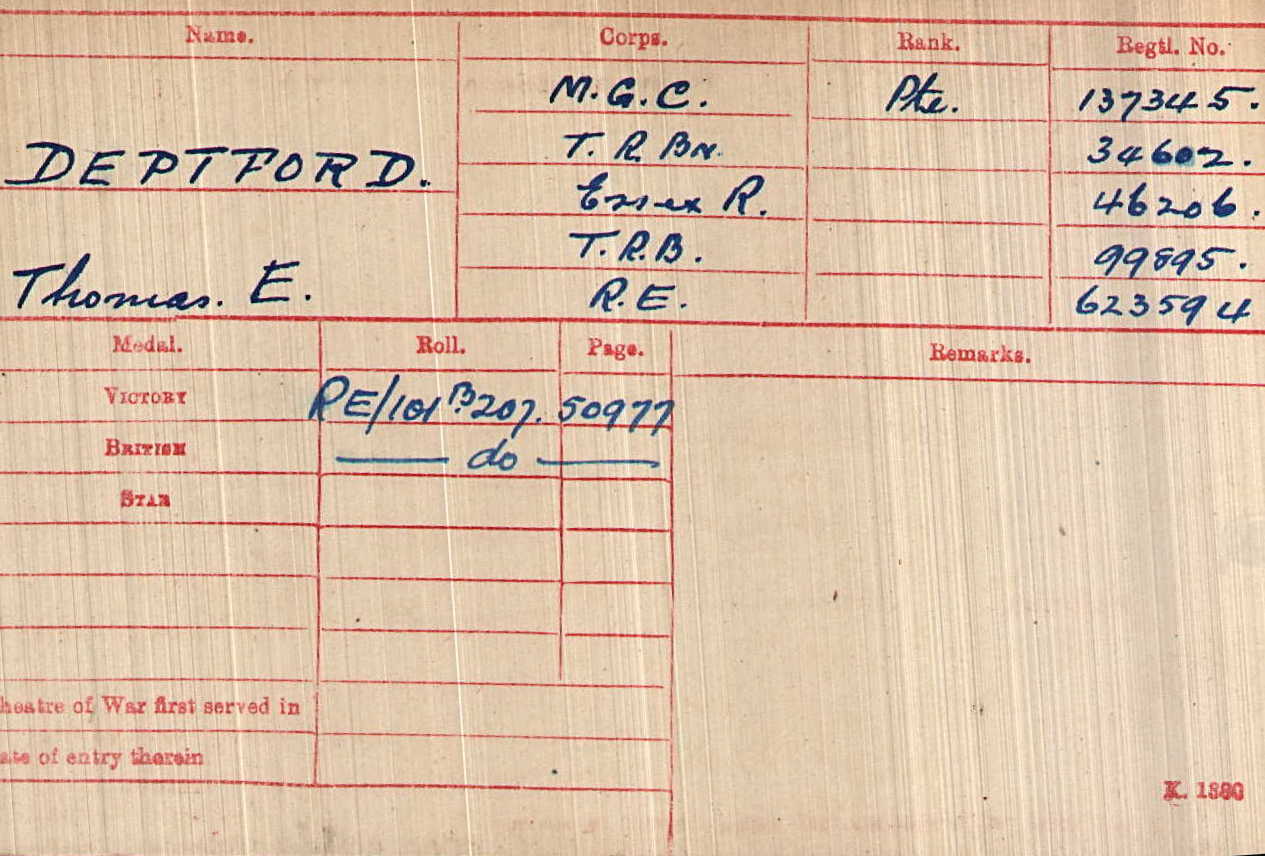 Name. Corps. Rank. Regtl. No.
M.G.C. Pte. 137345.
DEPTFORD. T. R. Bn. 34602.
Essex R. 46206.
T.R.B. 99895.
Thomas. E. R.E. 623594
Medal. Roll. Page. Remarks.
VICTORY RE/101 B207. 50977
BRITISH —— do ——
STAR
heatre of War first served in
ate of entry therein
K. 1380